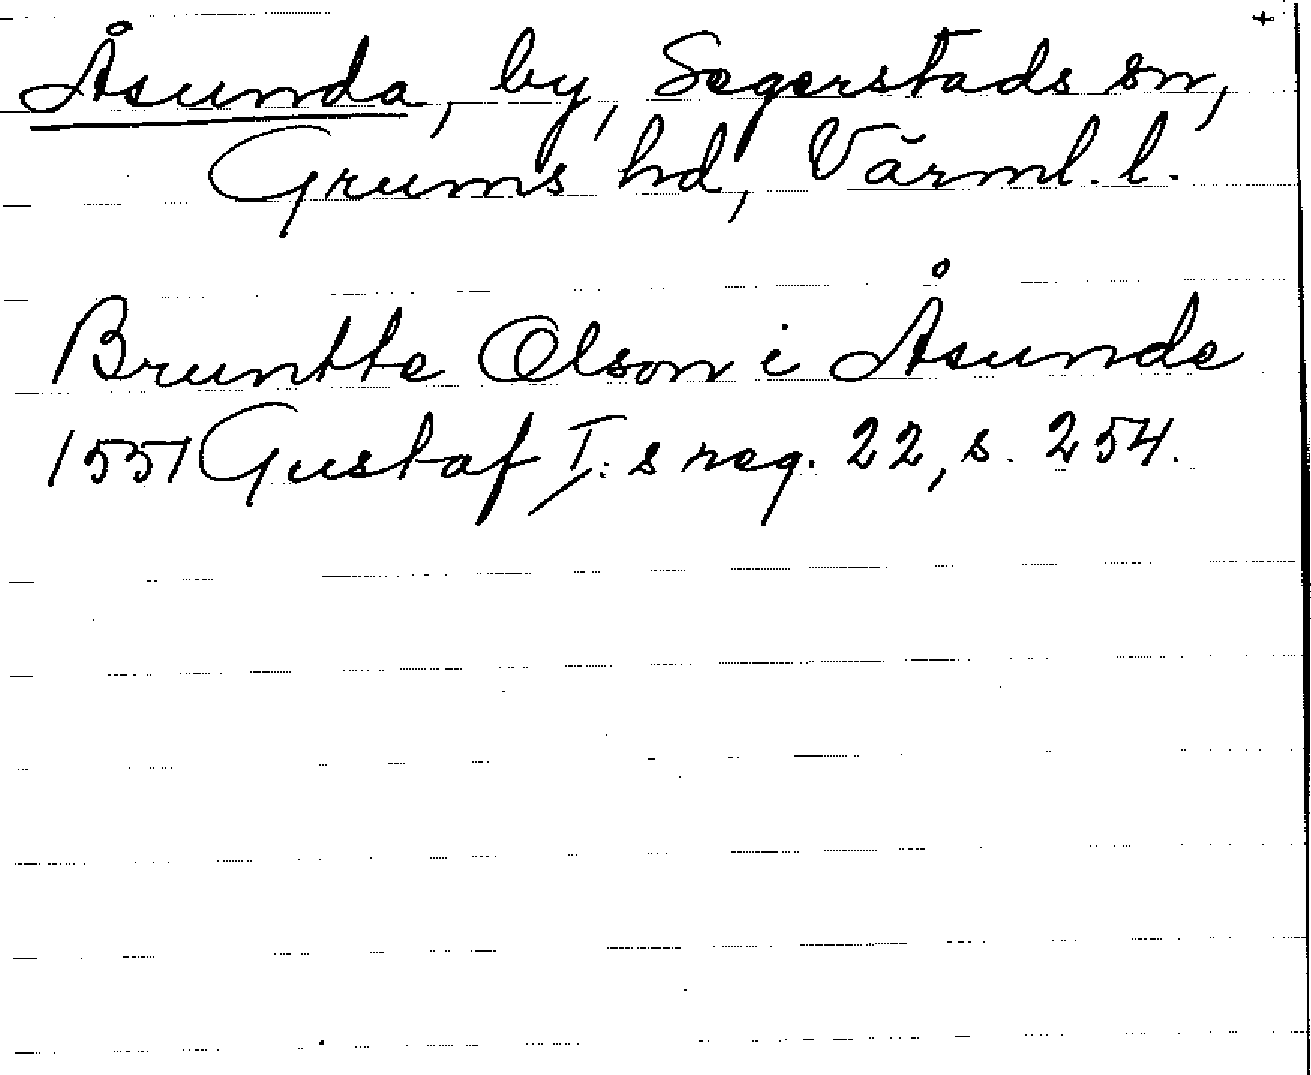 +
Åsunda, by, Segerstads sn,
Grums hd, Värml. l.
Bruntte Olson i Åsunde
1551 Gustaf I:s reg. 22, s. 254.